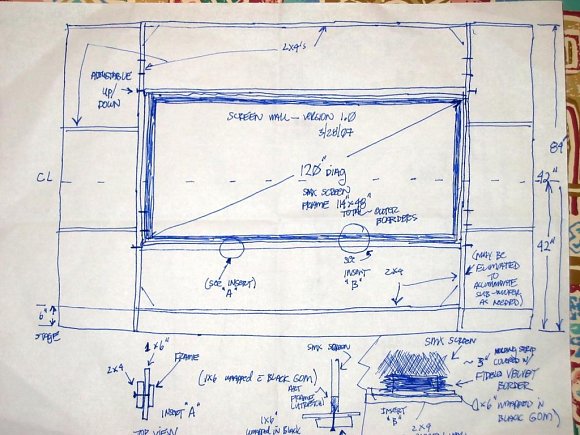 2x4's
ADJUSTABLE
UP/
DOWN
SCREEN WALL - VERSION 1.0
3/28/07
120" DIAG
SMX SCREEN
FRAME 114" x 48"
TOTAL - OUTER
BOARDERS
CL
84"
42"
42"
(SEE INSERT)
"A"
SEE
INSERT
"B"
2x4
(MAY BE
ELIMINATED
TO
AS NEEDED)
6"
STAGE
1x6"
2x4
FRAME
INSERT "A"
TOP VIEW
(1x6 WRAPPED BLACK GOM)
SMX SCREEN
ART
FRAME
1x6"
WRAPPED IN BLACK
SMX SCREEN
3"
COVERED W/
FIDELIO VELVET
BORDER
1x6" WRAPPED IN
BLACK GOM)
INSERT
"B"
2x4